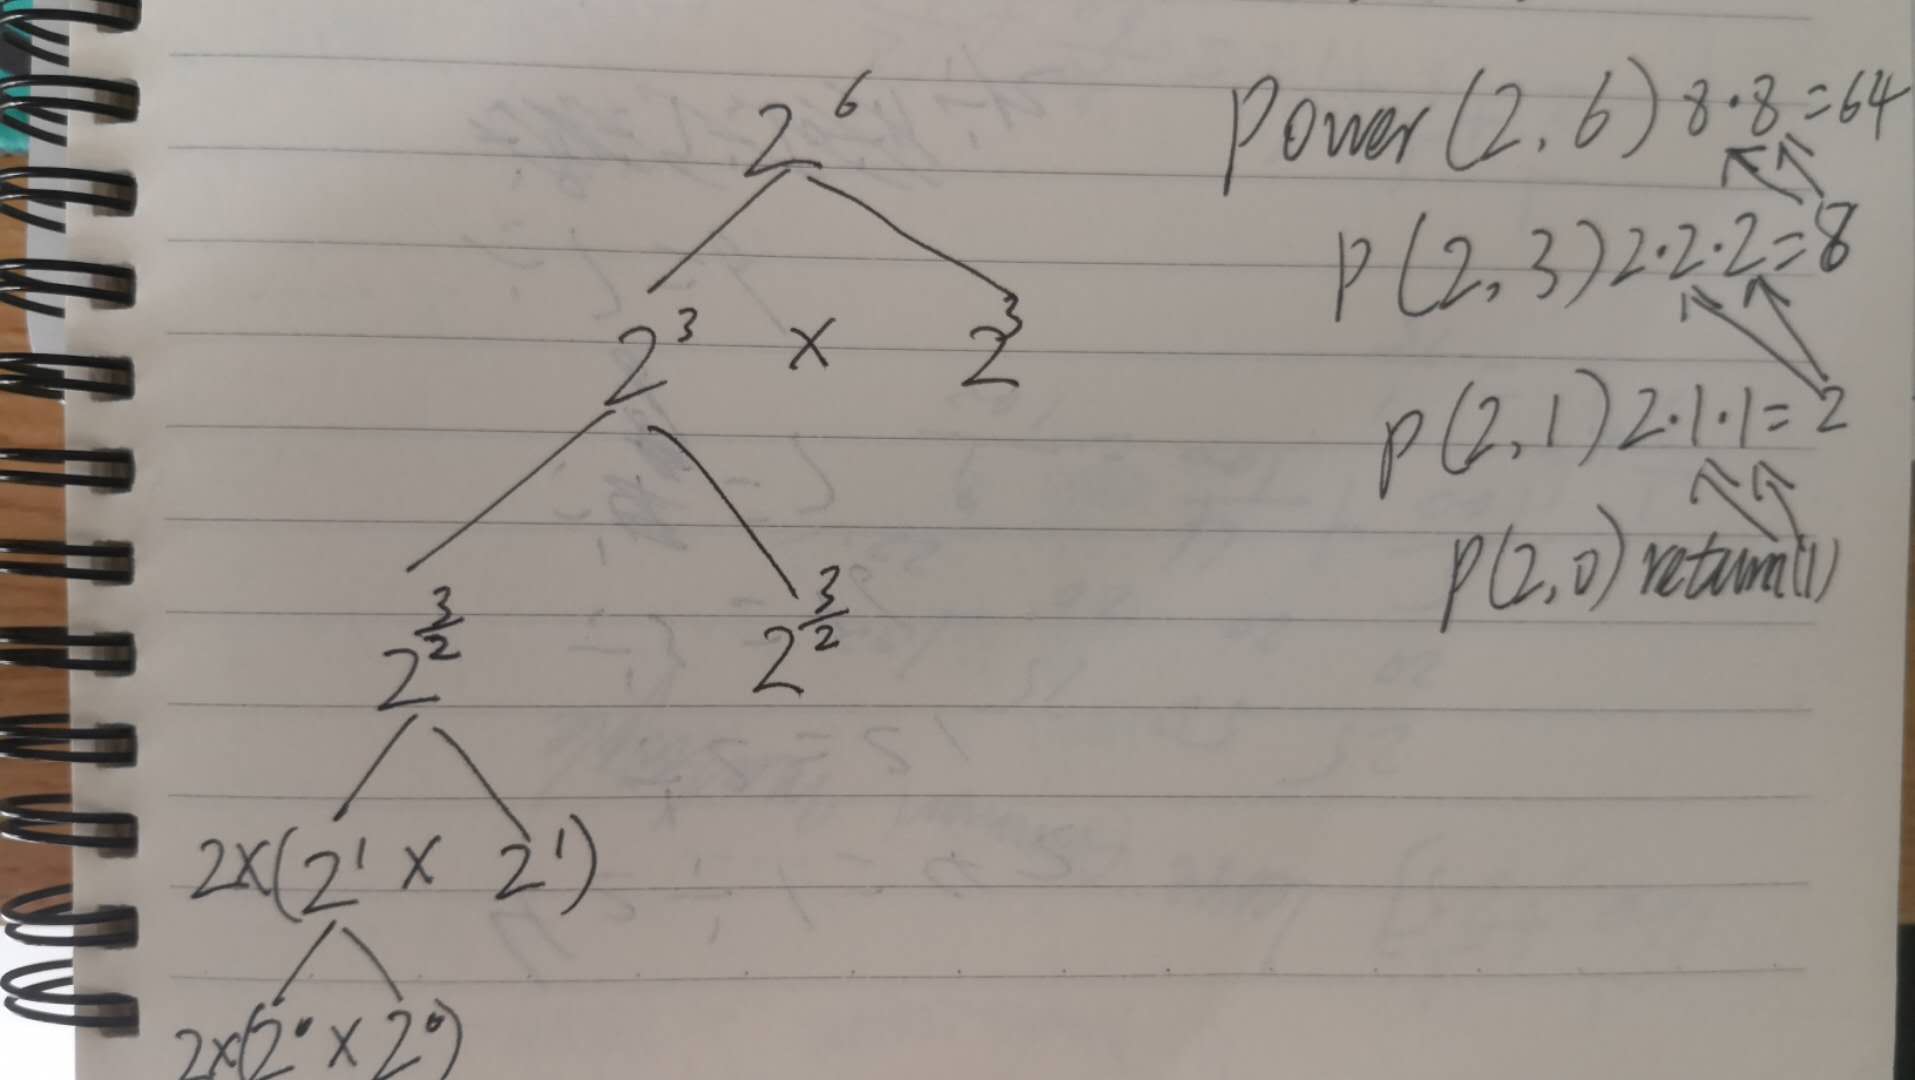 2^6
2^3 × 2^3
2^(3/2) 2^(3/2)
2×(2^1 × 2^1)
2×(2^0 × 2^0)
Power(2,6) 8·8=64
P(2,3) 2·2·2=8
P(2,1) 2·1·1=2
P(2,0) return(1)